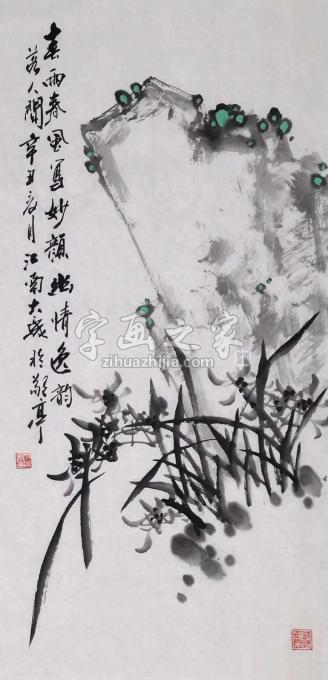 春雨春风写妙颜幽情逸韵
落人间辛丑 月江南大 於敬亭
字画之家
zihuazhijia.com